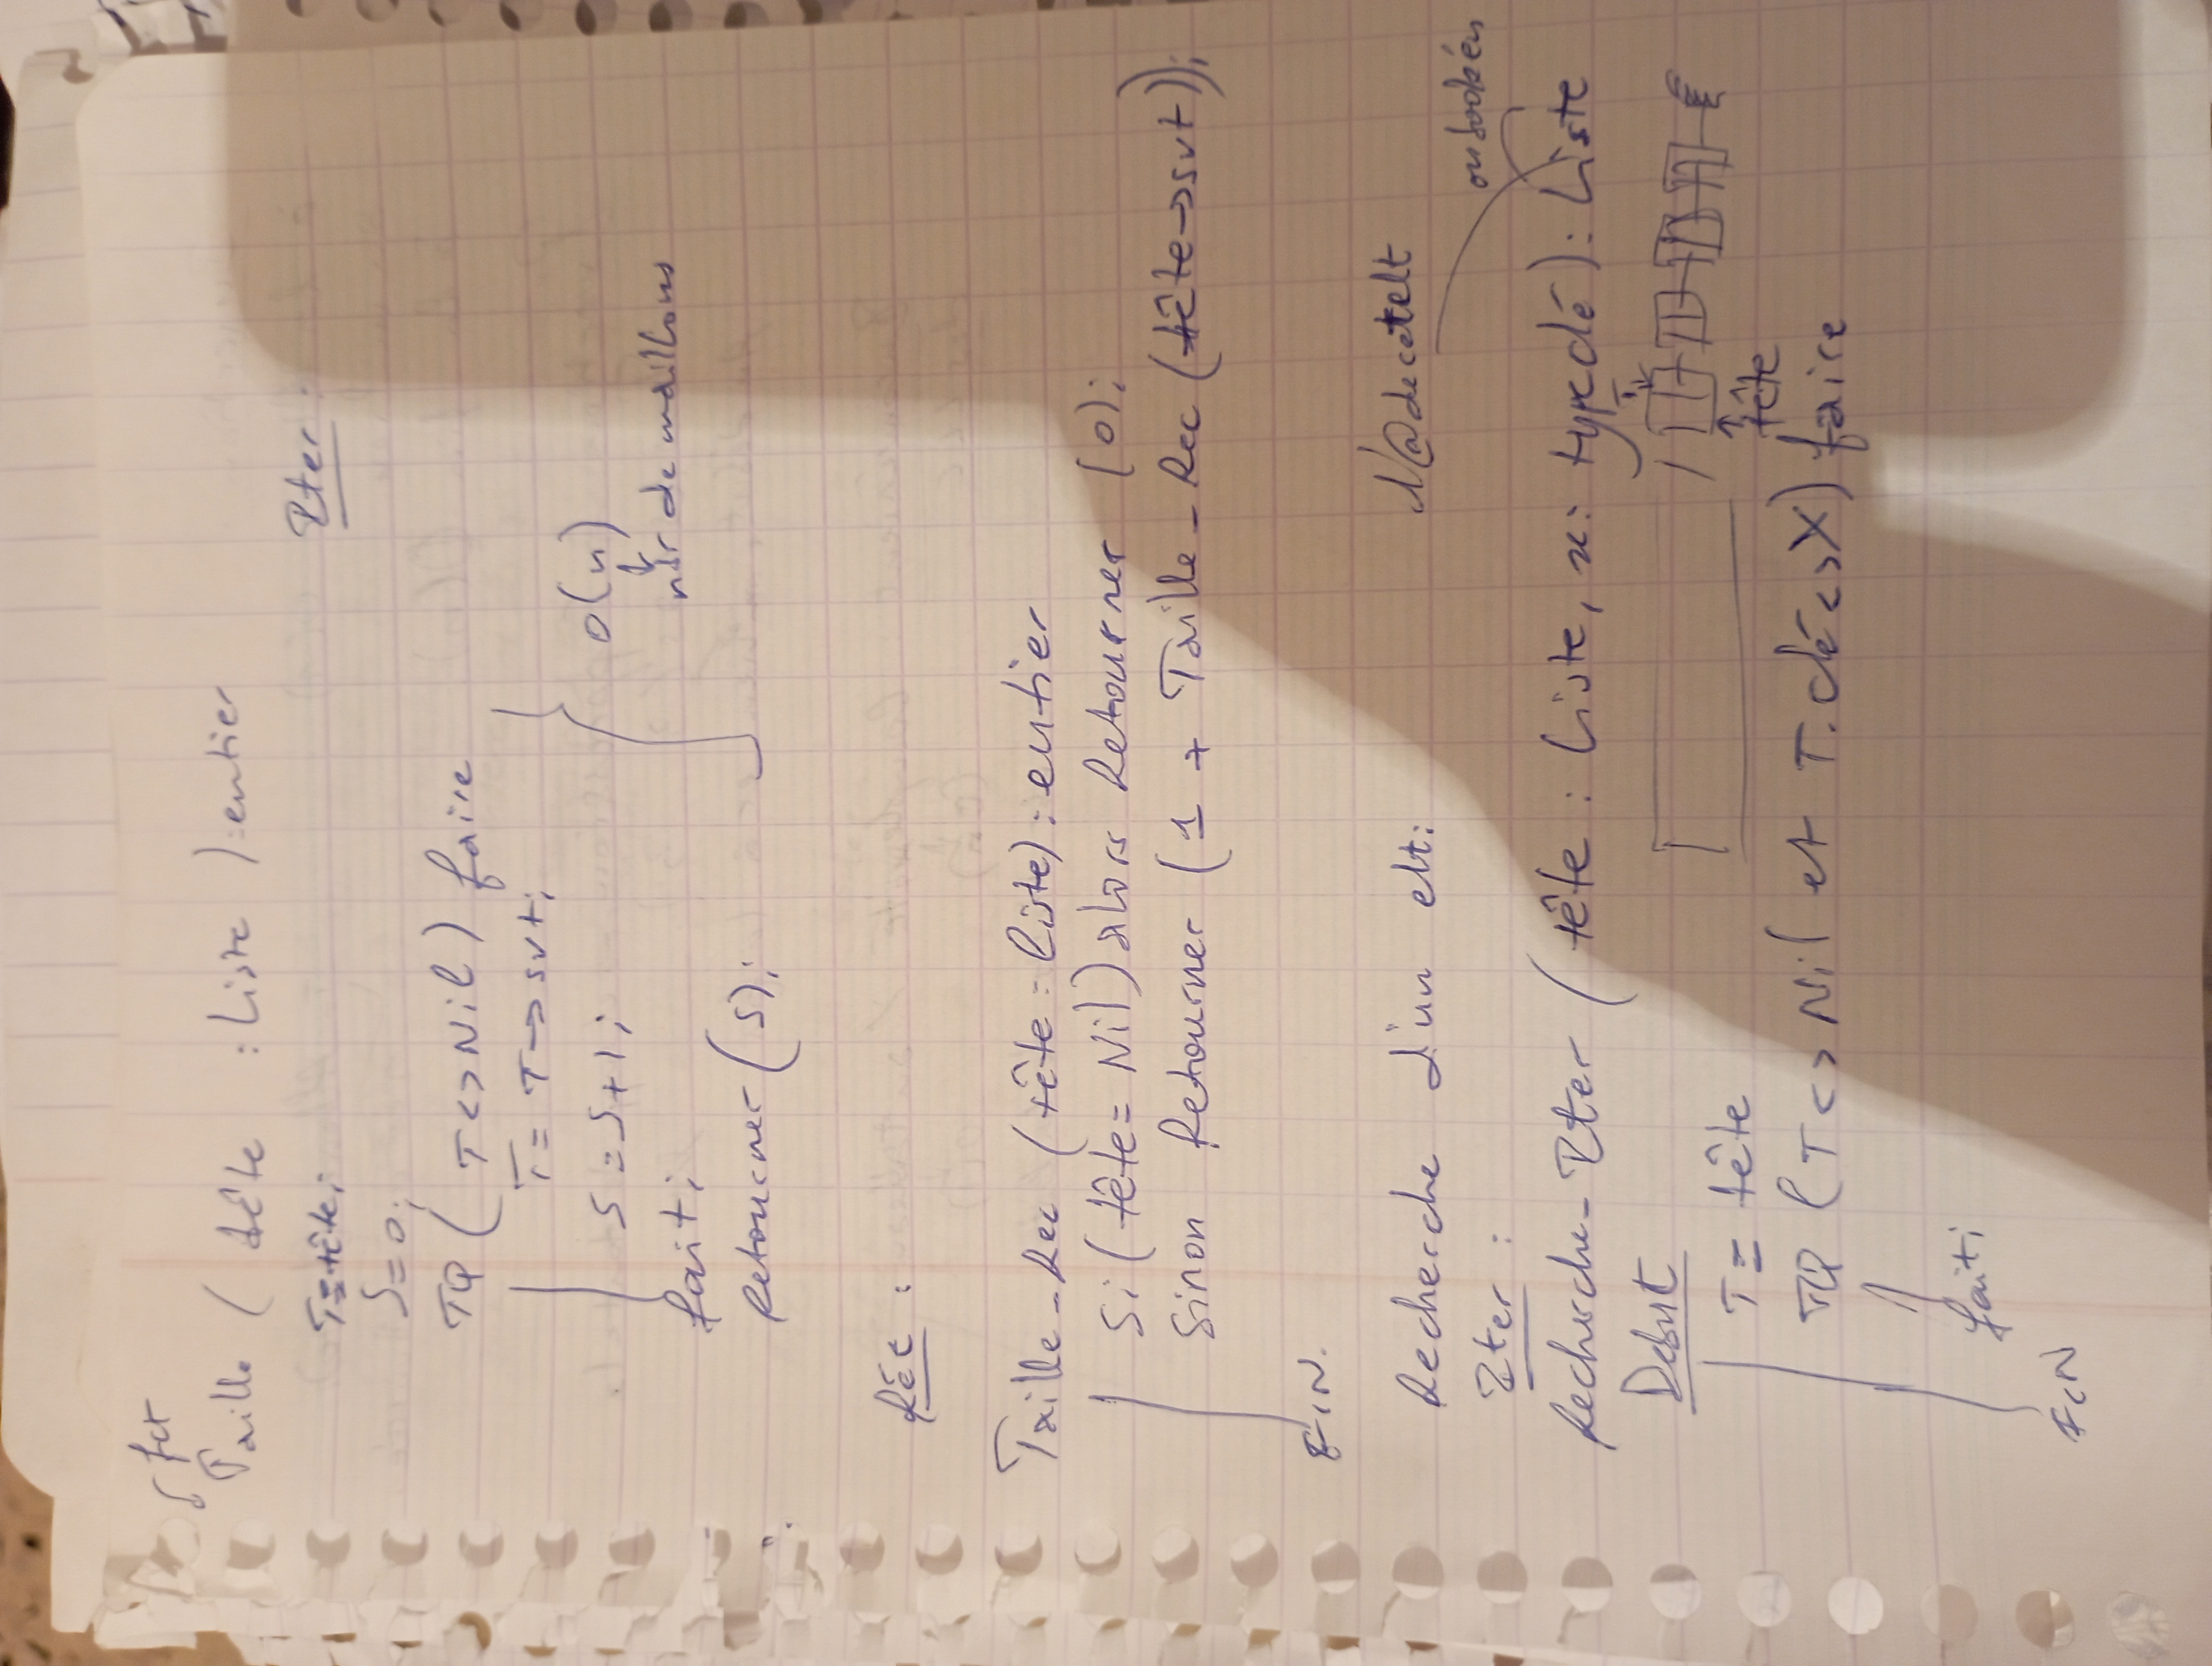 fct
Taille (tête : Liste) : entier
Iter :
T = tête ;
S = 0 ;
TQ (T <> Nil) faire
T = T → svt ;
S = S + 1 ;
fait ;
Retourner (S) ;
O(n)
nbr de maillons
Réc :
Taille_Rec (tête : liste) : entier
Si (tête = Nil) alors Retourner (0) ;
Sinon Retourner (1 + Taille_Rec (tête → svt)) ;
FIN.
Recherche d'un elt :
l'@ de cet elt
ou booléen
Iter :
Recherche_Iter (tête : Liste, x : typedé) : Liste
Debut
T
T = tête
tête
TQ (T <> Nil et T.clé <> X) faire
fait ;
FIN